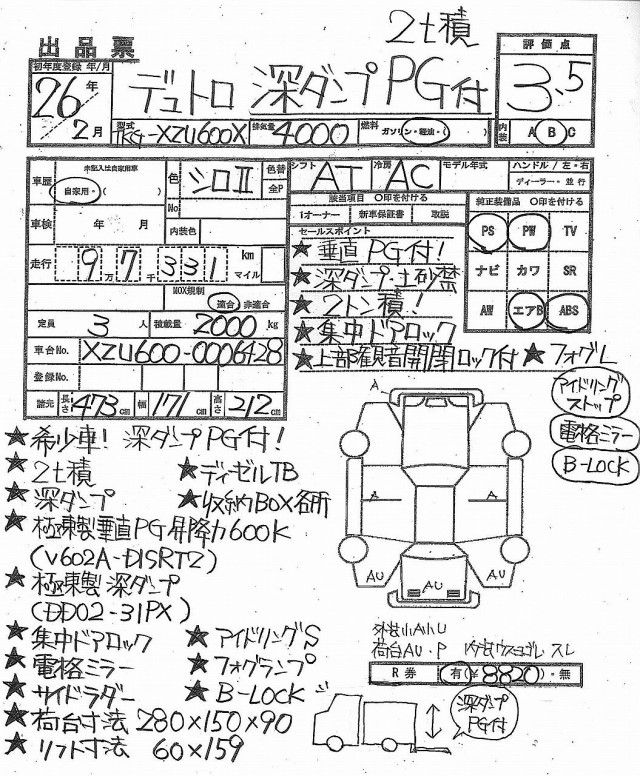 2t積
出品票
評価点
初年度登録 年/月
26年
2月
デュトロ 深ダンプ PG付
3.5
型式 TKG-XZU600X 排気量 4000 燃料 ガソリン・軽油・( )
内装 A B C
車歴 未記入は自家用車
自家用・( )
色 シロⅡ 色替 全P
No
シフト AT 冷房 AC モデル年式 ハンドル/左・右
ディーラー・並行
車検 年 月 内装色
該当項目 ○印を付ける
1オーナー 新車保証書 取説
純正装備品 ○印を付ける
PS PW TV
ナビ カワ SR
AW エアB ABS
走行 9万7千331 km マイル
NOX規制
適合・非適合
定員 3人 積載量 2000kg
車台No. XZU600-0006428
登録No.
諸元 長さ 473cm 幅 171cm 高さ 212cm
セールスポイント
★垂直PG付!
★深ダンプ・土砂禁
★2トン積!
★集中ドアロック
★上部観音開閉ロック付 ★フォグL
アイドリング
ストップ
電格ミラー
B-LOCK
★希少車! 深ダンプPG付!
★2t積 ★ディゼルTB
★深ダンプ ★収納BOX各所
★極東製垂直PG昇降力600K
(V602A-D1SRTZ)
★極東製 深ダンプ
(DD02-31PX)
★集中ドアロック ★アイドリングS
★電格ミラー ★フォグランプ
★サイドラダー ★B-LOCK
★荷台寸法 280×150×90
★リフト寸法 60×159
A
A A
AU AU AU
外装小A小U
荷台AU・P 内装ウスヨゴレ・スレ
R券 有(¥8820)・無
深ダンプ
PG付